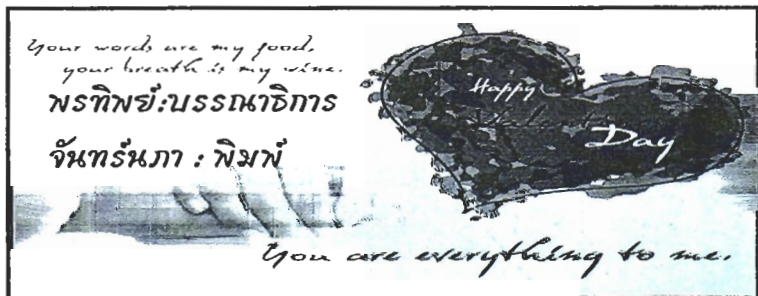 Your words are my food,
your breath is my wine.
พรทิพย์:บรรณาธิการ
จันทร์นภา : พิมพ์
Happy
Day
You are everything to me.